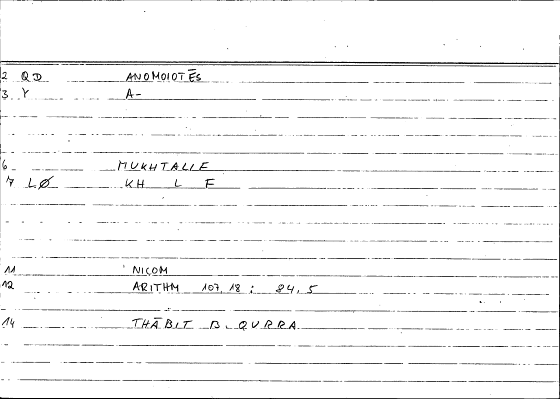 2 QD ANOMOIOTĒS
3 Y A-
6 MUKHTALIF
7 LØ KH L F
11 NICOM
12 ARITHM 107,18 : 84,5
14 THĀBIT B. QURRA